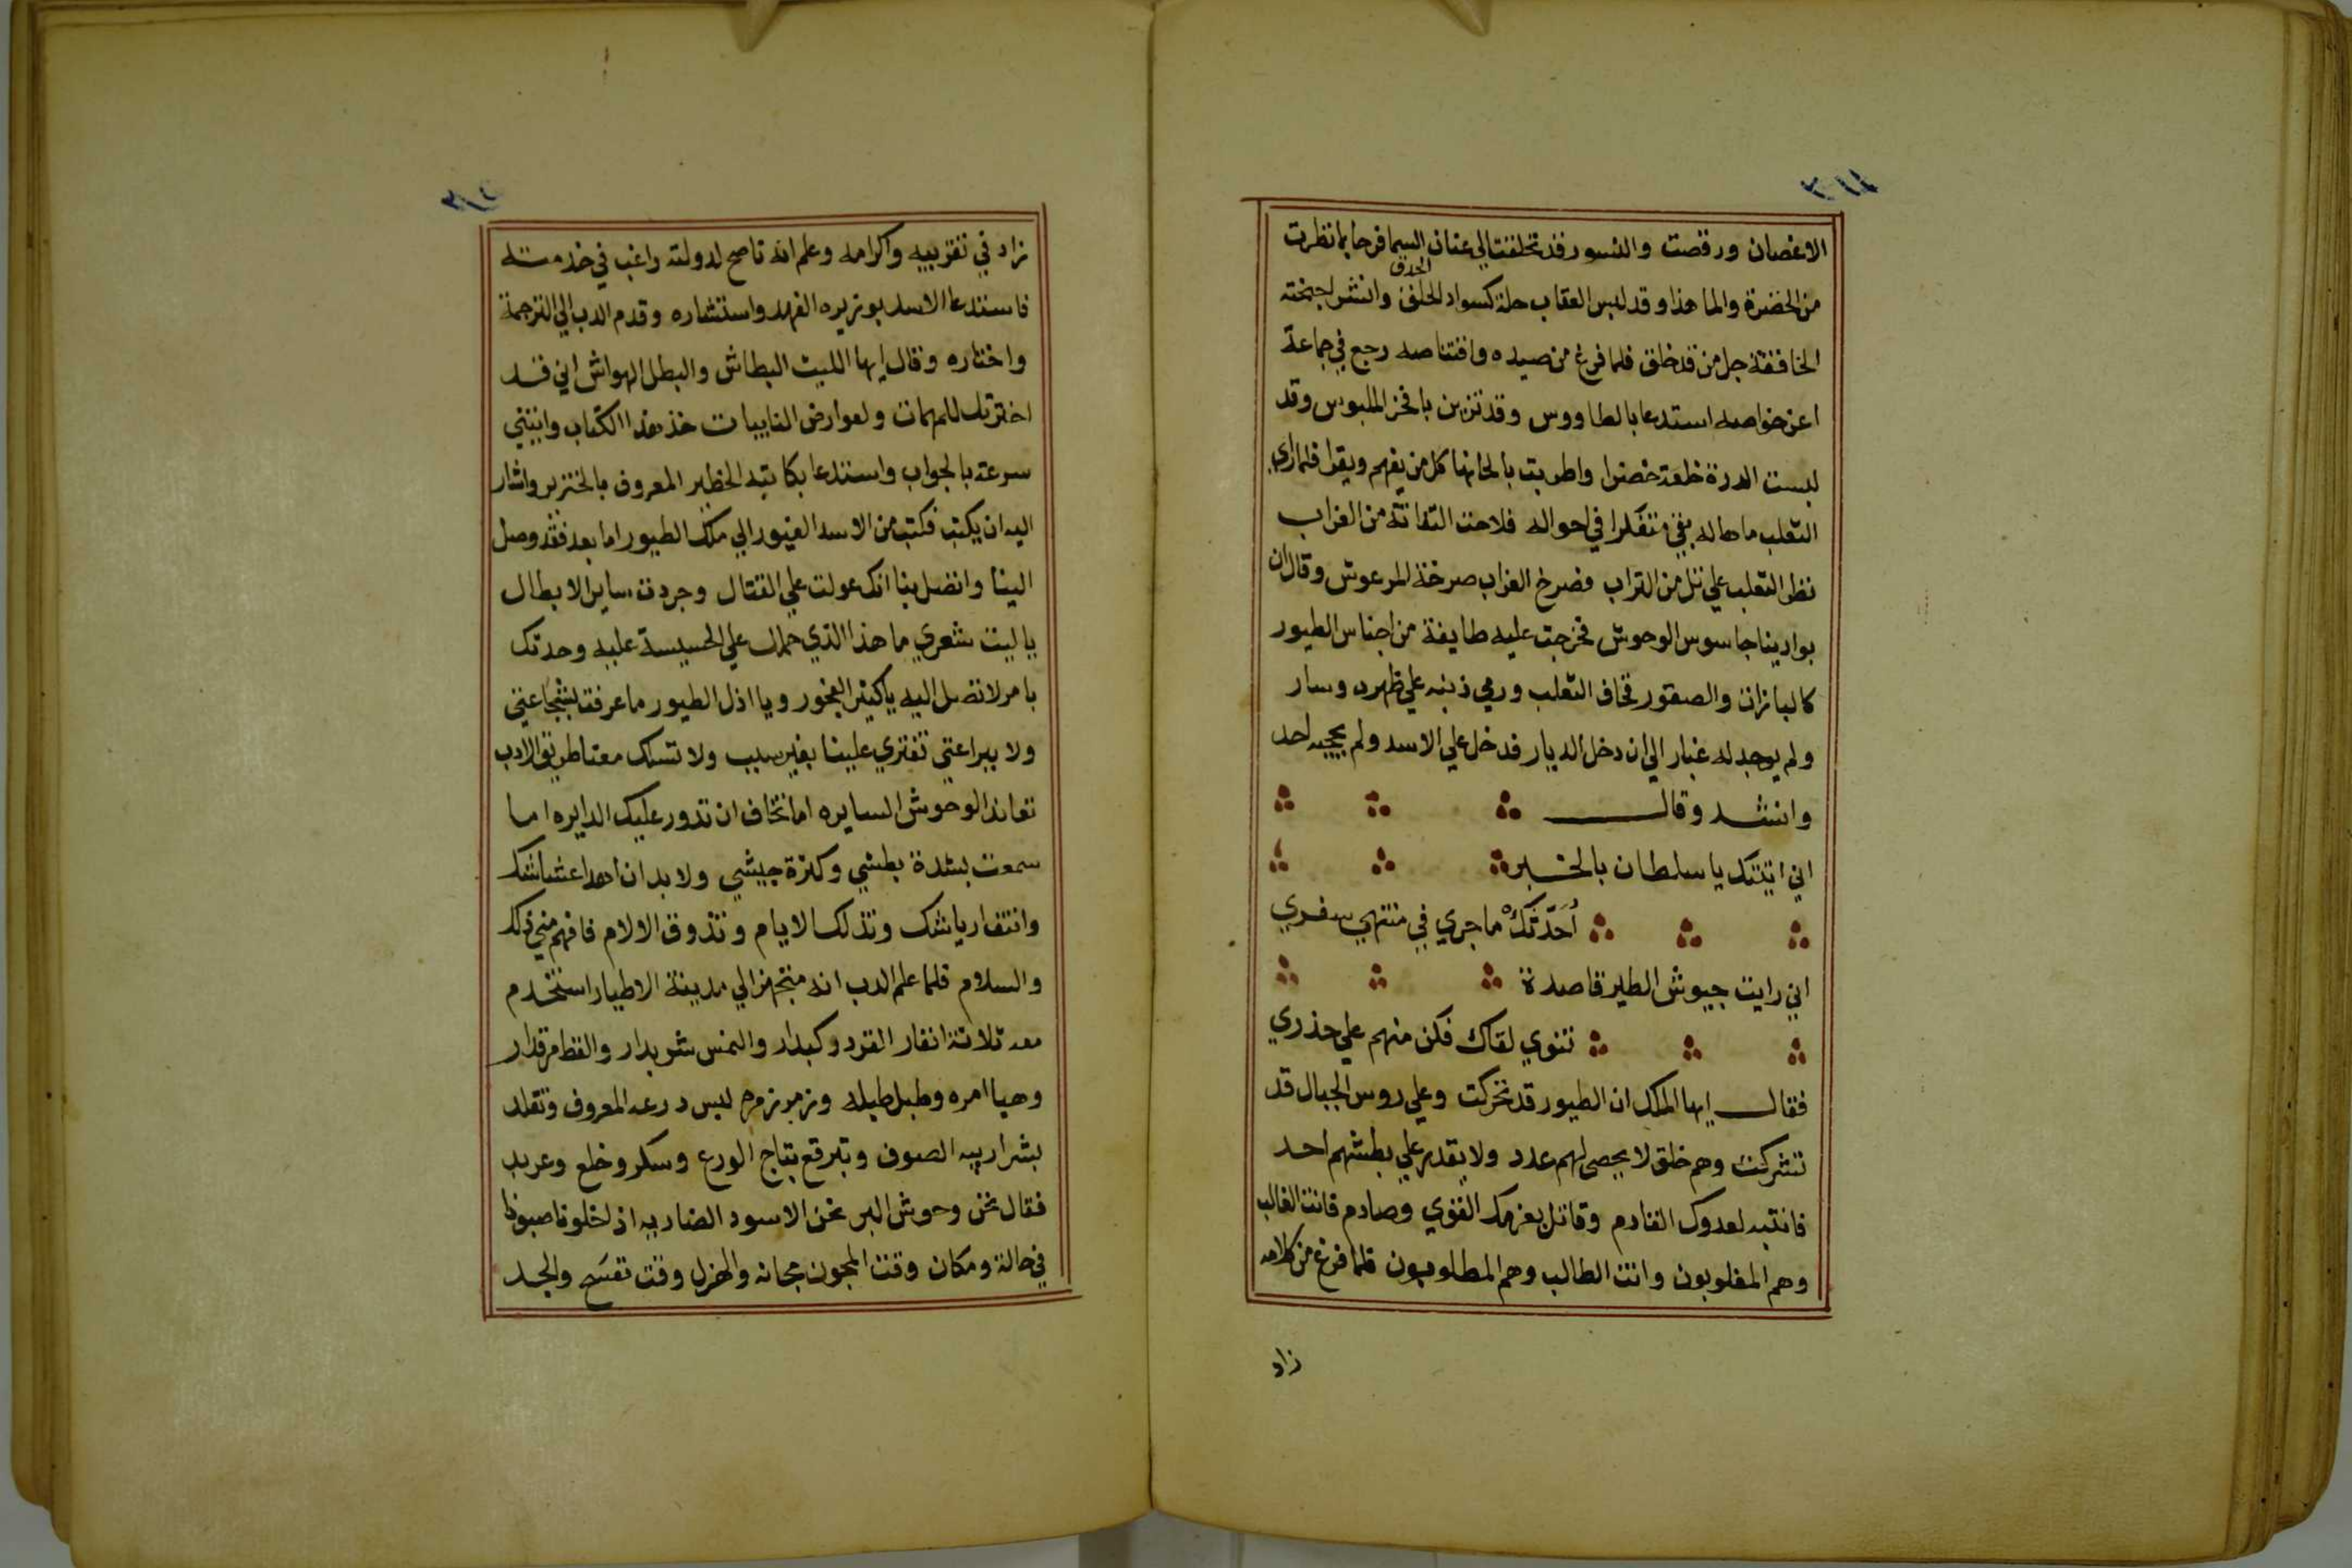 الاغصان ورقصت والنسور قد تخلفت الي عنان السما فرحا بما نظرت
الحدق
من الخضرة والما هذا وقد لبس العقاب حلة كسواد الحلق وانشر اجنحته
الخافقة جل من قد خلق فلما فرغ من صيده واقتناصه رجع في جماعة
اعز خواصه استدعا بالطاووس وقد تزين بافخر الملبوس وقد
لبست الدرة خلعة خضرا واطربت بالحانها كل من يفهم ويقرا فلما راي
الثعلب ما هاله بقي متفكرا في احواله فلاحت التفاتة من الغراب
نظر الثعلب علي تل من التراب فصرخ الغراب صرخة المرعوش وقال ان
بوادينا جاسوس الوحوش فخرجت عليه طايفة من اجناس الطيور
كالبازان والصقور فخاف الثعلب ورمي ذنبه علي ظهره وسار
ولم يوجد له غبار الي ان دخل الديار فدخل علي الاسد ولم يحجبه احد
وانشد وقال
اني اتيتك يا سلطان بالخبر
أحدّثكْ ما جري في منتهي سفري
اني رايت جيوش الطير قاصدة
تنوي لقاك فكن منهم علي حذري
فقال ايها الملك ان الطيور قد تحركت وعلي روس الجبال قد
تشركت وهم خلق لا يحصي لهم عدد ولا يقدر علي بطشهم احد
فانتبه لعدوك القادم وقاتل بعزمك القوي وصادم فانت الغالب
وهم المغلوبون وانت الطالب وهم المطلوبون فلما فرغ من كلامه
زاد
٣١٤
زاد في تقريبه واكرامه وعلم انه ناصح لدولته راغب في خدمته
فاستدعا الاسد بوزيره الفهد واستشاره وقدم الدب الي الترجمة
واختاره وقال ايها الليث البطاش والبطل الهواش اني قد
اخترتك للمهمات ولعوارض النايبات خذ هذا الكتاب وايتني
سرعة بالجواب واستدعا بكاتبه الخطير المعروف بالخنزير واشار
اليه ان يكتب فكتب من الاسد الغيور الي ملك الطيور اما بعد فقد وصل
الينا واتصل بنا انك عولت علي القتال وجردت ساير الابطال
يا ليت شعري ما هذا الذي حملك علي الحسيسة عليه وحدتك
بامر لا تصل اليه يا كثير الفجور ويا اذل الطيور ما عرفت بشجاعتي
ولا ببراعتي تفتري علينا بغير سبب ولا تسلك معنا طريق الادب
تعاند الوحوش السايره اما تخاف ان تدور عليك الدايره اما
سمعت بشدة بطشي وكثرة جيشي ولا بد ان اهد اعشاشك
وانتف ارياشك وتذلك الايام وتذوق الالام فافهم مني ذلك
والسلام فلما علم الدب انه متجهز الي مدينة الاطيار استخدم
معه ثلاثة انفار القرد وكبدار والنمس شربدار والقط مرقدار
وهيا امره وطبل طبله وزمر زمره لبس درعه المعروف وتقلد
بشراريبه الصوف وتبرقع بتاج الورع وسكر وخلع وعربد
فقال نحن وحوش البر نحن الاسود الضاريه اذ لخلونا صبونا
في حالة ومكان وقت المجون مجانه والهزل وقت تفسّح والجد